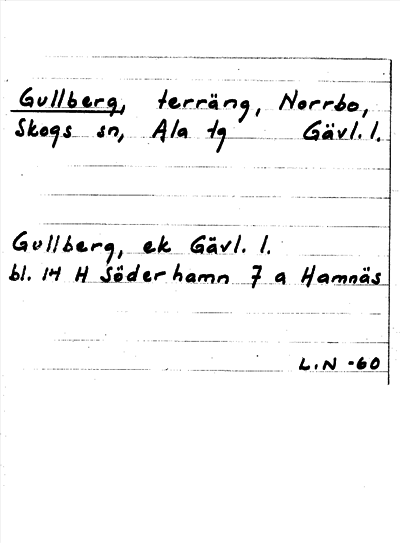 Gullberg, terräng, Norrbo,
Skogs sn, Ala tg Gävl. l.
Gullberg, ek Gävl. l.
bl. 14 H Söderhamn 7 a Hamnäs
L.N -60